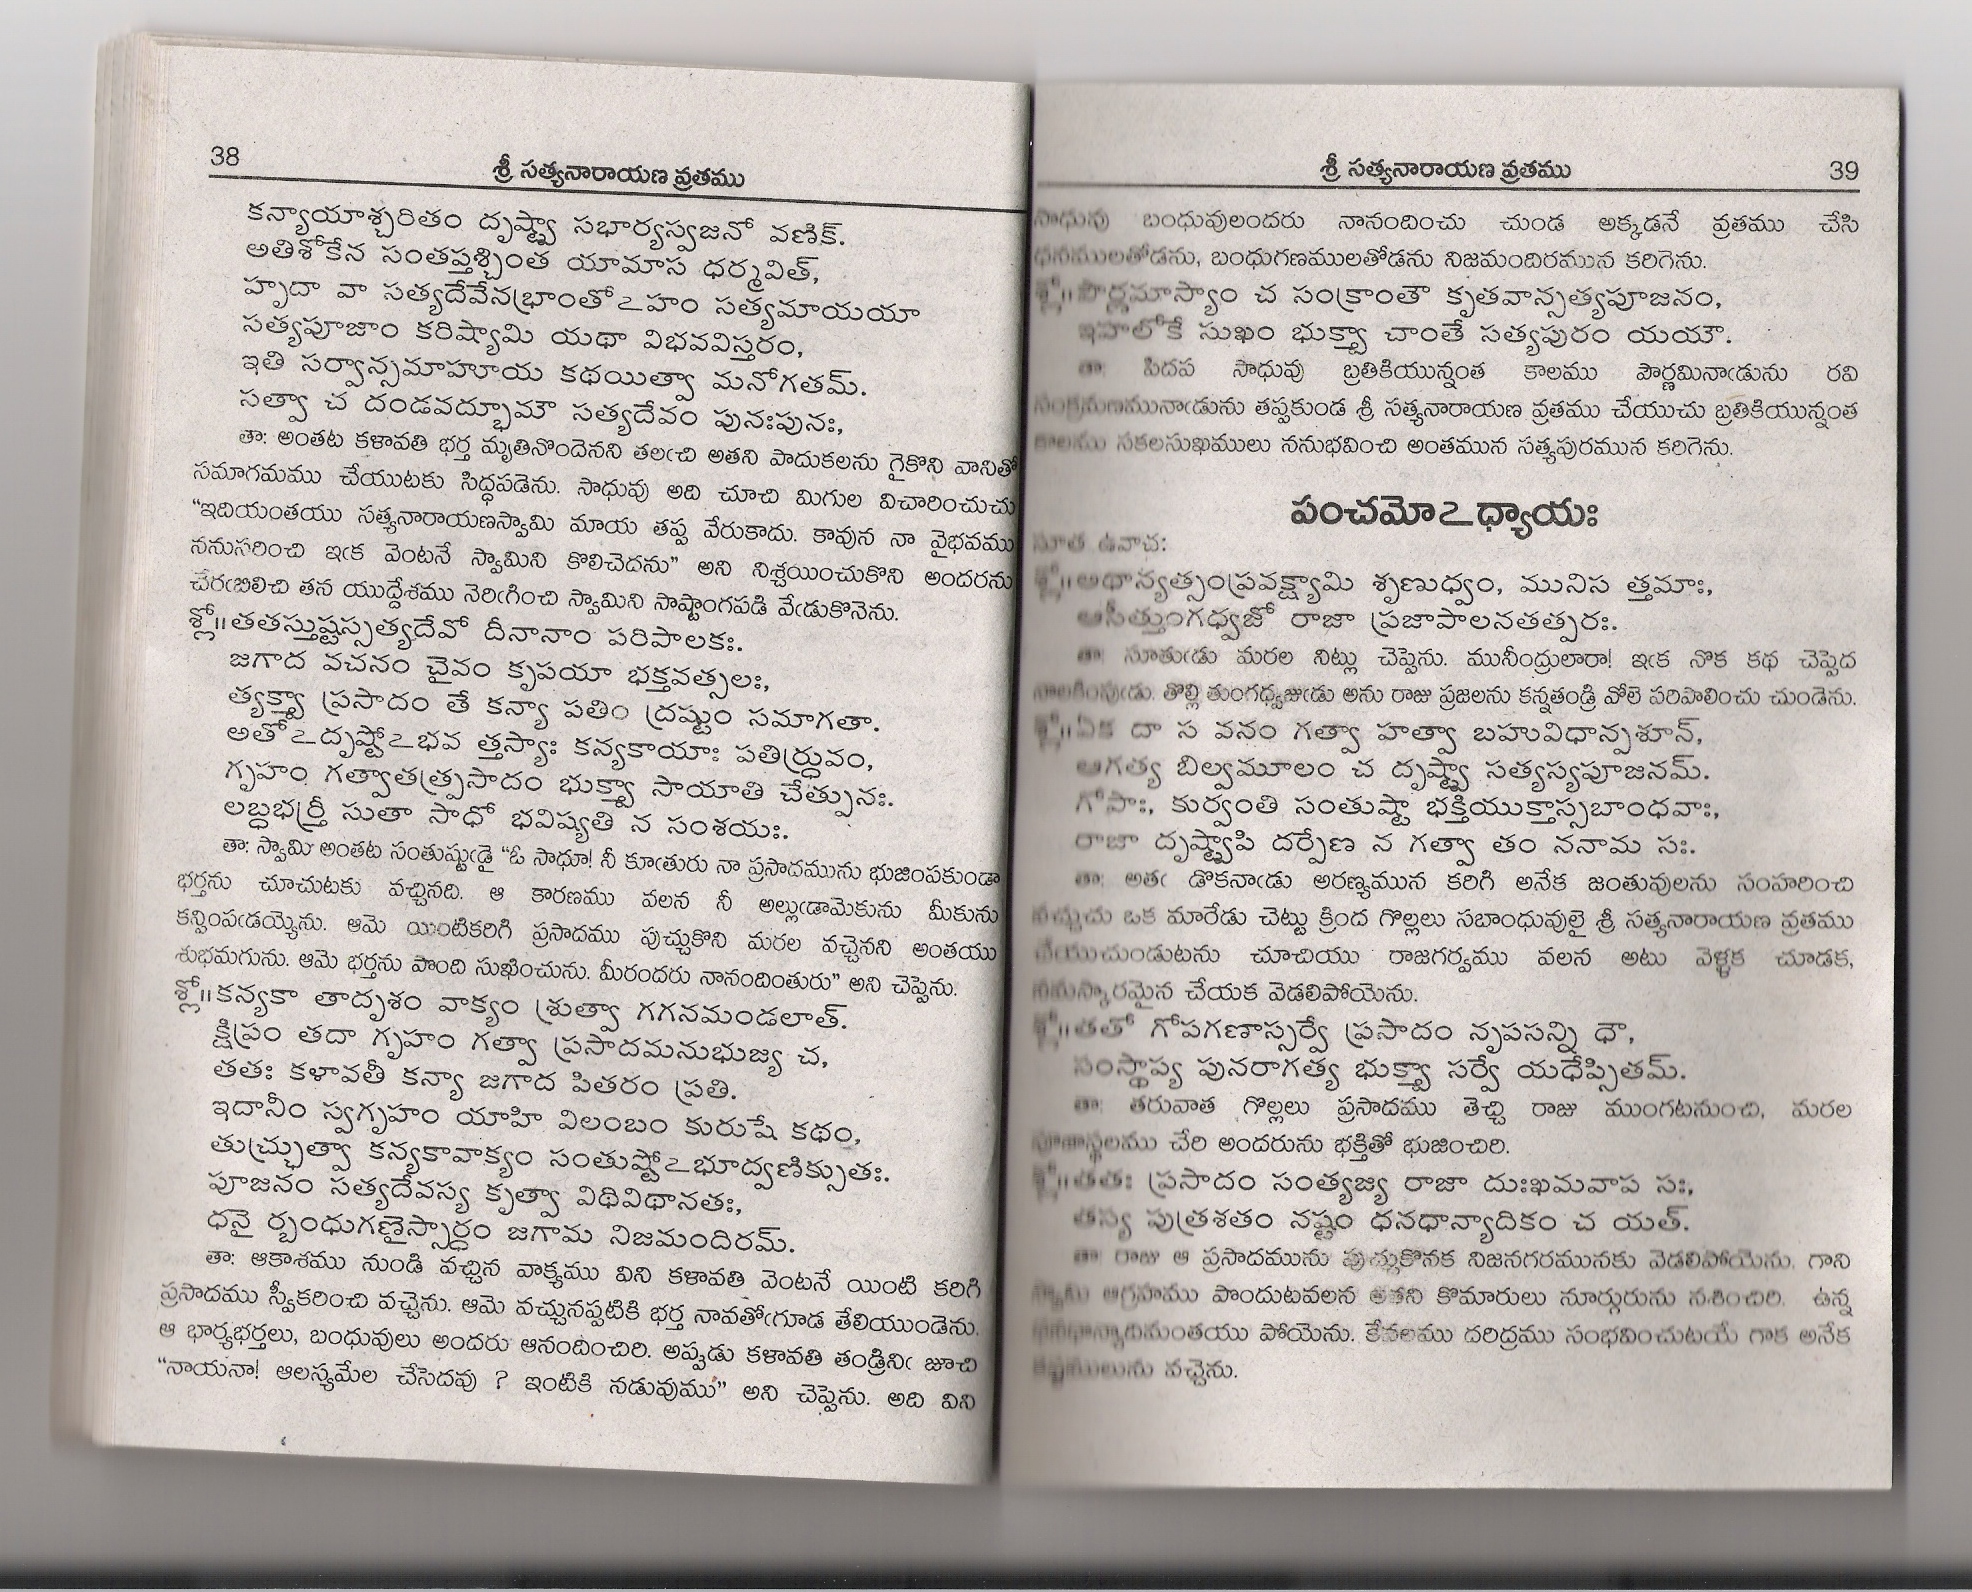 38
శ్రీ సత్యనారాయణ వ్రతము
కన్యాయాశ్చరితం దృష్ట్వా సభార్యస్వజనో వణిక్.
అతిశోకేన సంతప్తశ్చింత యామాస ధర్మవిత్,
హృదా వా సత్యదేవేనభ్రాంతోఽహం సత్యమాయయా
సత్యపూజాం కరిష్యామి యథా విభవవిస్తరం,
ఇతి సర్వాన్సమాహూయ కథయిత్వా మనోగతమ్.
సత్వా చ దండవద్భూమౌ సత్యదేవం పునఃపునః,
తా: అంతట కళావతి భర్త మృతినొందెనని తలఁచి అతని పాదుకలను గైకొని వానితో
సమాగమము చేయుటకు సిద్ధపడెను. సాధువు అది చూచి మిగుల విచారించుచు
“ఇదియంతయు సత్యనారాయణస్వామి మాయ తప్ప వేరుకాదు. కావున నా వైభవము
ననుసరించి ఇఁక వెంటనే స్వామిని కొలిచెదను” అని నిశ్చయించుకొని అందరను
చేరఁబిలిచి తన యుద్దేశము నెరిఁగించి స్వామిని సాష్టాంగపడి వేఁడుకొనెను.
శ్లో॥ తతస్తుష్టస్సత్యదేవో దీనానాం పరిపాలకః.
జగాద వచనం చైవం కృపయా భక్తవత్సలః,
త్యక్త్వా ప్రసాదం తే కన్యా పతిం ద్రష్టుం సమాగతా.
అతోఽదృష్టోఽభవ త్తస్యాః కన్యకాయాః పతిర్ధ్రువం,
గృహం గత్వాతత్ప్రసాదం భుక్త్వా సాయాతి చేత్పునః.
లబ్ధభర్త్రీ సుతా సాధో భవిష్యతి న సంశయః.
తా: స్వామి అంతట సంతుష్టుఁడై “ఓ సాధూ! నీ కూఁతురు నా ప్రసాదమును భుజింపకుండా
భర్తను చూచుటకు వచ్చినది. ఆ కారణము వలన నీ అల్లుఁడామెకును మీకును
కన్పింపఁడయ్యెను. ఆమె యింటికరిగి ప్రసాదము పుచ్చుకొని మరల వచ్చెనని అంతయు
శుభమగును. ఆమె భర్తను పొంది సుఖించును. మీరందరు నానందింతురు” అని చెప్పెను.
శ్లో॥ కన్యకా తాదృశం వాక్యం శ్రుత్వా గగనమండలాత్.
క్షిప్రం తదా గృహం గత్వా ప్రసాదమనుభుజ్య చ,
తతః కళావతీ కన్యా జగాద పితరం ప్రతి.
ఇదానీం స్వగృహం యాహి విలంబం కురుషే కథం,
తుచ్ఛ్రుత్వా కన్యకావాక్యం సంతుష్టోఽభూద్వణిక్సుతః.
పూజనం సత్యదేవస్య కృత్వా విథివిథానతః,
ధనై ర్బంధుగణైస్సార్ధం జగామ నిజమందిరమ్.
తా: ఆకాశము నుండి వచ్చిన వాక్యము విని కళావతి వెంటనే యింటి కరిగి
ప్రసాదము స్వీకరించి వచ్చెను. ఆమె వచ్చునప్పటికి భర్త నావతోఁగూడ తేలియుండెను.
ఆ భార్యభర్తలు, బంధువులు అందరు ఆనందించిరి. అప్పడు కళావతి తండ్రినిఁ జూచి
“నాయనా! ఆలస్యమేల చేసెదవు ? ఇంటికి నడువుము” అని చెప్పెను. అది విని
శ్రీ సత్యనారాయణ వ్రతము
39
సాధువు బంధువులందరు నానందించు చుండ అక్కడనే వ్రతము చేసి
ధనములతోడను, బంధుగణములతోడను నిజమందిరమున కరిగెను.
శ్లో॥ పౌర్ణమాస్యాం చ సంక్రాంతౌ కృతవాన్సత్యపూజనం,
ఇహలోకే సుఖం భుక్త్వా చాంతే సత్యపురం యయౌ.
తా: పిదప సాధువు బ్రతికియున్నంత కాలము పౌర్ణమినాఁడును రవి
సంక్రమణమునాఁడును తప్పకుండ శ్రీ సత్యనారాయణ వ్రతము చేయుచు బ్రతికియున్నంత
కాలము సకలసుఖములు ననుభవించి అంతమున సత్యపురమున కరిగెను.
పంచమోఽధ్యాయః
సూత ఉవాచ:
శ్లో॥ అథాన్యత్సంప్రవక్ష్యామి శృణుధ్వం, మునిస త్తమాః,
ఆసీత్తుంగధ్వజో రాజా ప్రజాపాలనతత్పరః.
తా: సూతుఁడు మరల నిట్లు చెప్పెను. మునీంద్రులారా! ఇఁక నొక కథ చెప్పెద
నాలకింపుఁడు. తొల్లి తుంగధ్వజుఁడు అను రాజు ప్రజలను కన్నతండ్రి వోలె పరిపాలించు చుండెను.
శ్లో॥ ఏక దా స వనం గత్వా హత్వా బహువిధాన్పశూన్,
ఆగత్య బిల్వమూలం చ దృష్ట్వా సత్యస్యపూజనమ్.
గోపాః, కుర్వంతి సంతుష్టా భక్తియుక్తాస్సబాంధవాః,
రాజా దృష్ట్వాపి దర్పేణ న గత్వా తం ననామ సః.
తా: అతఁ డొకనాఁడు అరణ్యమున కరిగి అనేక జంతువులను సంహరించి
వచ్చుచు ఒక మారేడు చెట్టు క్రింద గొల్లలు సబాంధువులై శ్రీ సత్యనారాయణ వ్రతము
చేయుచుండుటను చూచియు రాజగర్వము వలన అటు వెళ్ళక చూడక,
నమస్కారమైన చేయక వెడలిపోయెను.
శ్లో॥ తతో గోపగణాస్సర్వే ప్రసాదం నృపసన్ని ధౌ,
సంస్థాప్య పునరాగత్య భుక్త్వా సర్వే యధేప్సితమ్.
తా: తరువాత గొల్లలు ప్రసాదము తెచ్చి రాజు ముంగటనుంచి, మరల
పూజాస్థలము చేరి అందరును భక్తితో భుజించిరి.
శ్లో॥ తతః ప్రసాదం సంత్యజ్య రాజా దుఃఖమవాప సః,
తస్య పుత్రశతం నష్టం ధనధాన్యాదికం చ యత్.
తా: రాజు ఆ ప్రసాదమును పుచ్చుకొనక నిజనగరమునకు వెడలిపోయెను. గాని
స్వామి ఆగ్రహము పొందుటవలన అతని కొమారులు నూర్గురును నశించిరి. ఉన్న
ధనధాన్యాదిమంతయు పోయెను. కేవలము దరిద్రము సంభవించుటయే గాక అనేక
కష్టములును వచ్చెను.